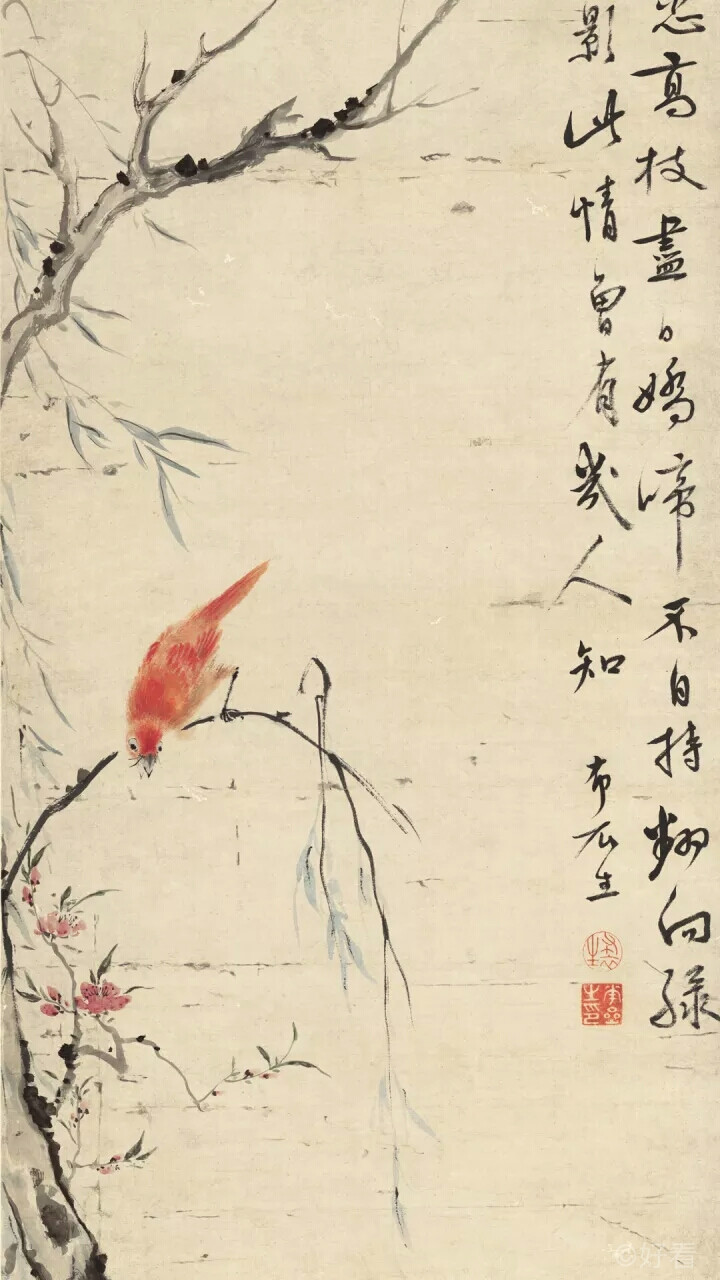 高枝盡日嬌啼不自持翻向綠
影此情曾有幾人知
生
好看